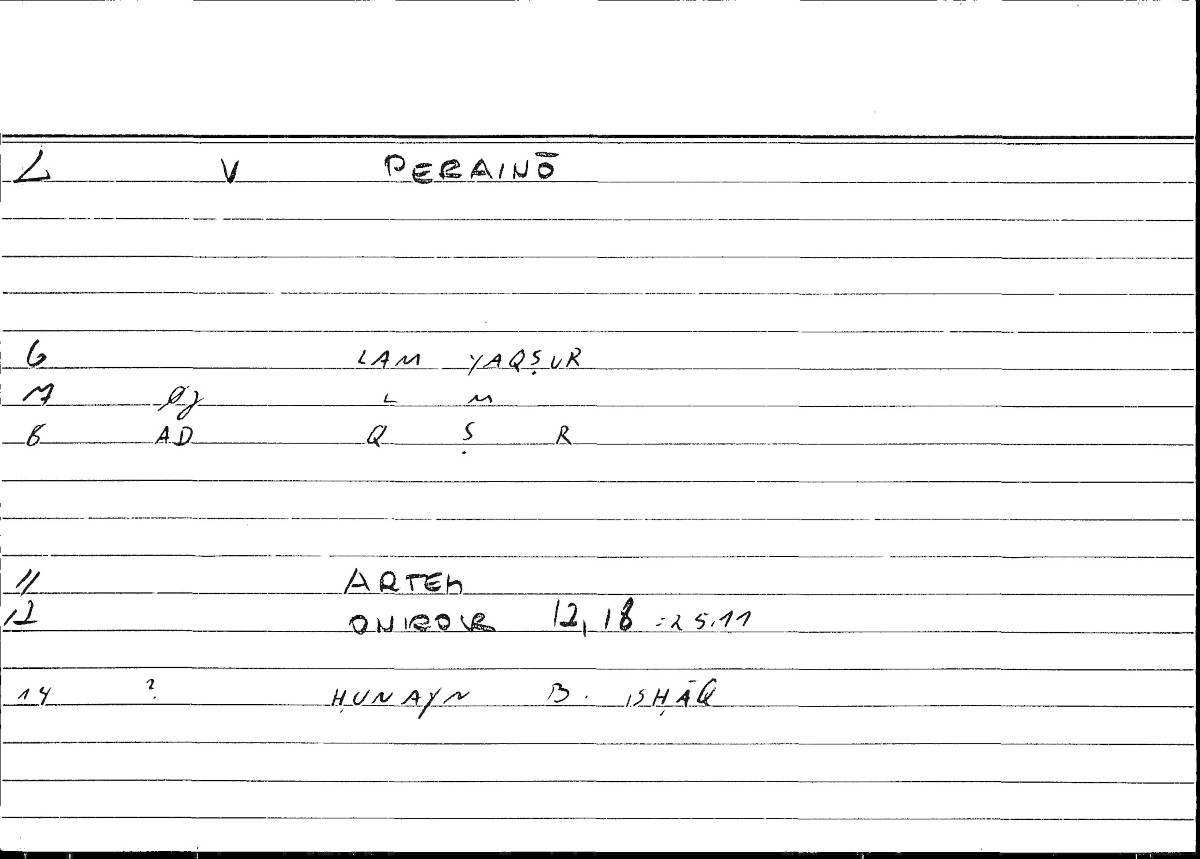 2 V PERAINŌ
6 LAM YAQṢUR
7 Øj L M
8 AD Q Ṣ R
11 ARTEM
12 ONIROKR 12,18 =25.11
14 ? ḤUNAYN B. ISḤĀQ